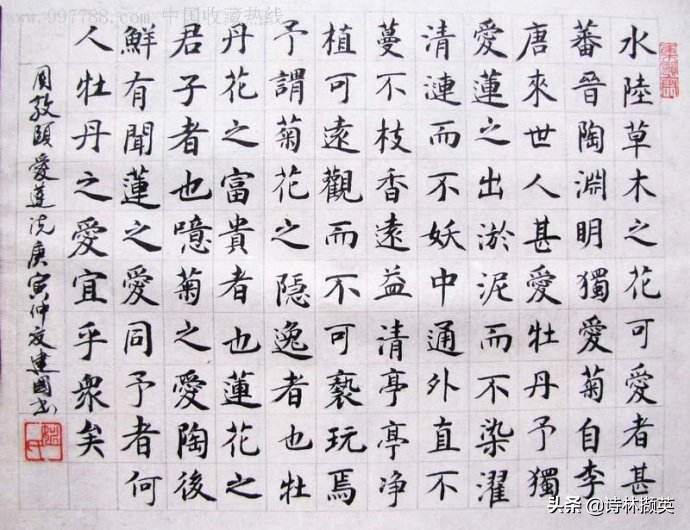 www.997788.com 中国收藏热线
水陸草木之花可愛者甚
蕃晉陶淵明獨愛菊自李
唐來世人甚愛牡丹予獨
愛蓮之出淤泥而不染濯
清漣而不妖中通外直不
蔓不枝香遠益清亭亭净
植可遠觀而不可褻玩焉
予謂菊花之隱逸者也牡
丹花之富貴者也蓮花之
君子者也噫菊之愛陶後
鮮有聞蓮之愛同予者何
人牡丹之愛宜乎衆矣
周敦頤愛蓮説庚寅仲夏建國書
头条 @诗林撷英